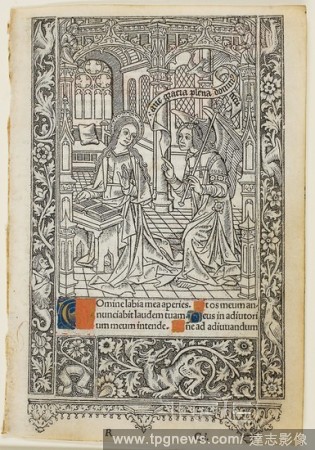 aue gracia plena dominus
Domine labia mea aperies. Et os meum an
nunciabit laudem tuam. Deus in adiutori
um meum intende. Dñe ad adiuvandum
www.tpgnews.com/ 達志影像